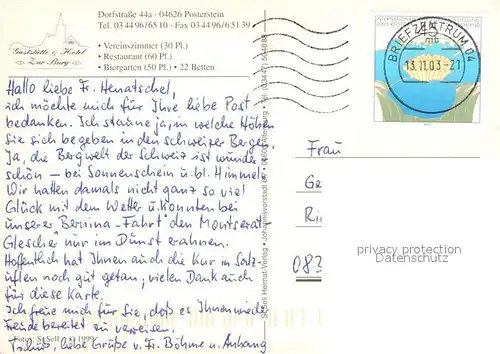 Gaststätte & Hotel
Zur Burg
Dorfstraße 44a · 04626 Posterstein
Tel. 03 44 96/65 10 · Fax 03 44 96/6 51 39
• Vereinszimmer (30 Pl.)
• Restaurant (60 Pl.)
• Biergarten (50 Pl.) • 22 Betten
BRIEFZENTRUM 04
13.11.03-21
Hallo liebe Fr. Henatschel,
ich möchte mich für Ihre liebe Post
bedanken. Ich staune ja, in welche Höhen
Sie sich begeben in den schweizer Bergen.
Ja, die Bergwelt der Schweiz ist wunder-
schön – bei Sonnenschein u. bl. Himmel.
Wir hatten damals nicht ganz so viel
Glück mit dem Wetter u. konnten bei
unserer Bernina-Fahrt den Montserat
Gletscher nur im Dunst erahnen.
Hoffentlich hat Ihnen auch die Kur in
uflen noch gut getan, vielen Dank auch
für diese Karte.
Ich freue mich für Sie, daß es Ihnen wieder
Freude bereitet zu verreisen.
Tschüß, liebe Grüße v. Fr. Böhme u. Anhang
Foto: S. Sell © 1999
Sell Heimat-Verlag
Frau
Ge
Ri
083
privacy protection
Datenschutz